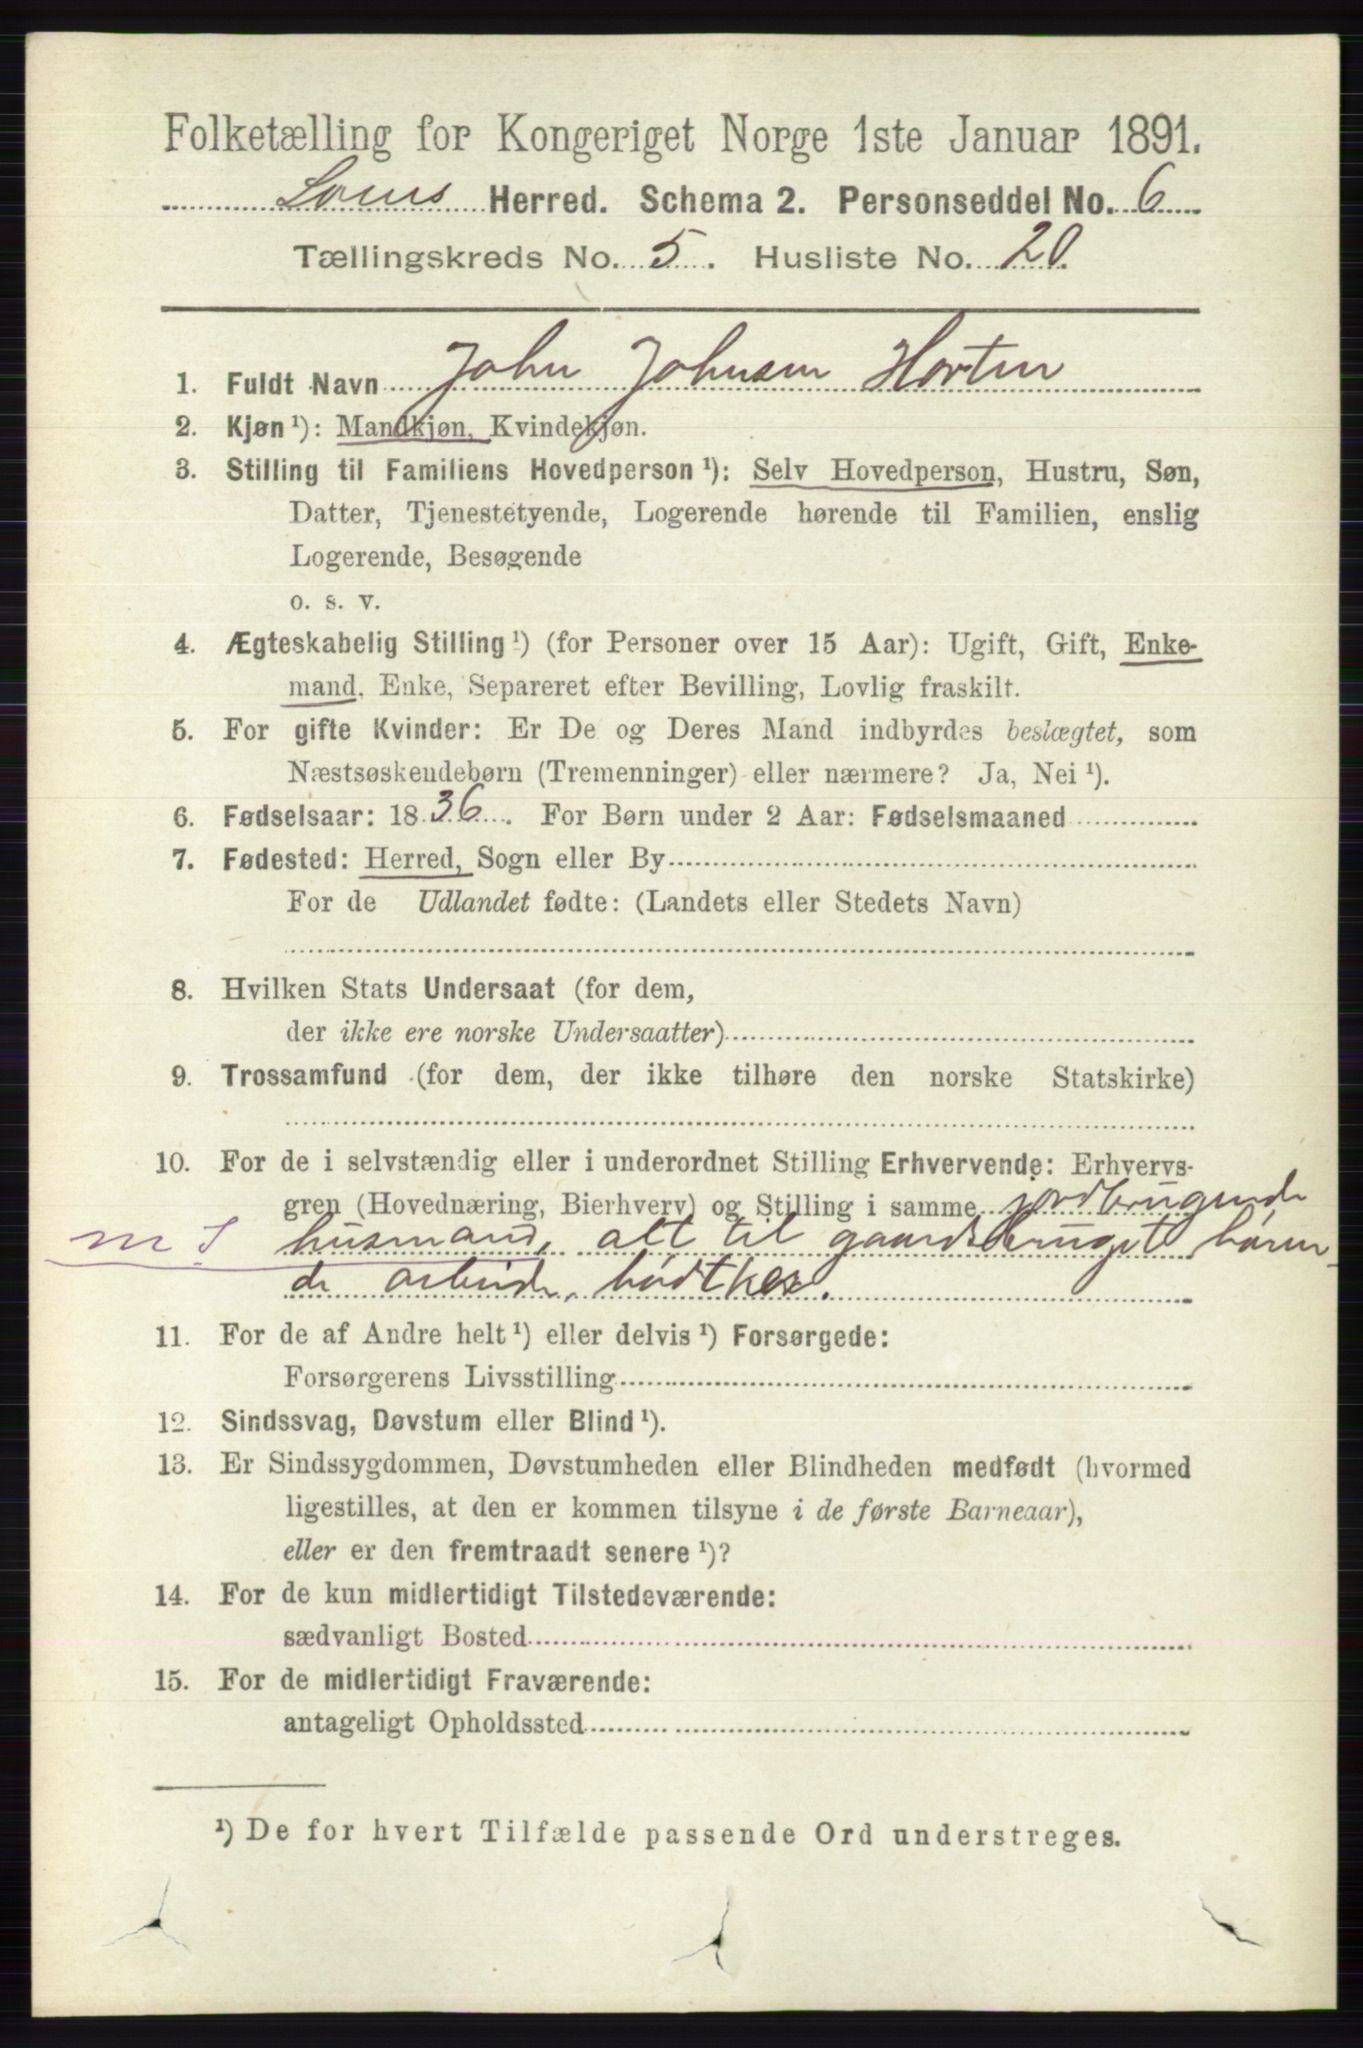 Folketælling for Kongeriget Norge 1ste Januar 1891.
Loms Herred. Schema 2. Personseddel No. 6
Tællingskreds No. 5. Husliste No. 20.
1. Fuldt Navn John Johnsen Horten
2. Kjøn ¹): Mandkjøn, Kvindekjøn.
3. Stilling til Familiens Hovedperson ¹): Selv Hovedperson, Hustru, Søn,
Datter, Tjenestetyende, Logerende hørende til Familien, enslig
Logerende, Besøgende
o. s. v.
4. Ægteskabelig Stilling ¹) (for Personer over 15 Aar): Ugift, Gift, Enke-
mand, Enke, Separeret efter Bevilling, Lovlig fraskilt.
5. For gifte Kvinder: Er De og Deres Mand indbyrdes beslægtet, som
Næstsøskendebørn (Tremenninger) eller nærmere? Ja, Nei ¹).
6. Fødselsaar: 1836. For Børn under 2 Aar: Fødselsmaaned
7. Fødested: Herred, Sogn eller By
For de Udlandet fødte: (Landets eller Stedets Navn)
8. Hvilken Stats Undersaat (for dem,
der ikke ere norske Undersaatter)
9. Trossamfund (for dem, der ikke tilhøre den norske Statskirke)
10. For de i selvstændig eller i underordnet Stilling Erhvervende: Erhvervs-
gren (Hovednæring, Bierhverv) og Stilling i samme jordbrugende
husmand, alt til gaardsbruget høren-
de arbeide, bødtker.
11. For de af Andre helt ¹) eller delvis ¹) Forsørgede:
Forsørgerens Livsstilling
12. Sindssvag, Døvstum eller Blind ¹).
13. Er Sindssygdommen, Døvstumheden eller Blindheden medfødt (hvormed
ligestilles, at den er kommen tilsyne i de første Barneaar),
eller er den fremtraadt senere ¹)?
14. For de kun midlertidigt Tilstedeværende:
sædvanligt Bosted
15. For de midlertidigt Fraværende:
antageligt Opholdssted
¹) De for hvert Tilfælde passende Ord understreges.